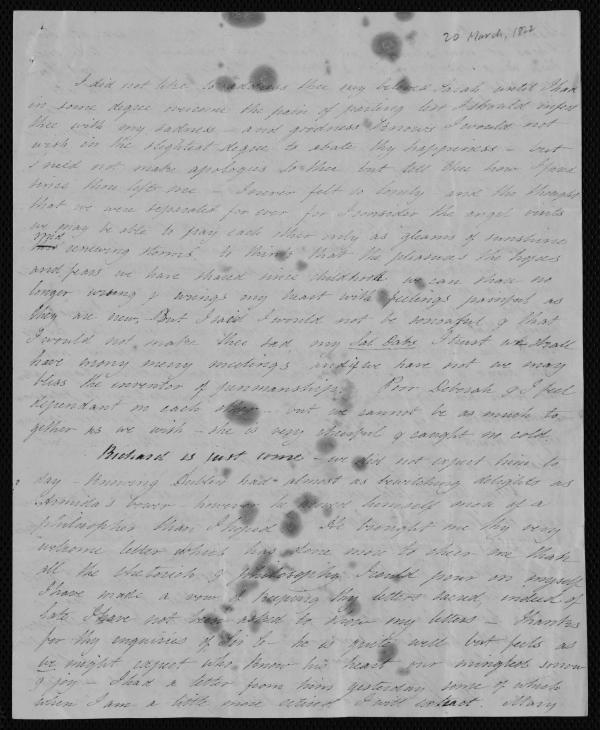 20 March, 1822
I did not like to address thee my beloved Sarah until I had
in some degree overcome the pain of parting lest I should infect
thee with my sadness – and goodness knows I would not
wish in the slightest degree to abate thy happiness – but
I need not make apologies to thee but tell thee how I found
since thou left me – I never felt so lonely and the thought
that we were separated for ever for I consider the angel visits
we may be able to pay each other only as gleams of sunshine
mid renewing storms to think that the pleasures the hopes
and fears we have shared since childhood we can share no
longer wrung & wrings my heart with feelings painful as
they are new. But I said I would not be sorrowful & that
I would not make thee sad my I trust we shall
have many merry meetings and if we have not we may
bless the inventor of penmanship. Poor Deborah & I feel
dependant on each other – but we cannot be as much to
gether as we wish – she is very cheerful & caught no cold.
Richard is just come – we did not expect him to
day – knowing Dublin had almost as bewitching delights as
Armida's bower however he proved himself more of a
philosopher than I hoped He brought me thy very
welcome letter which has done more to cheer me than
all the rhetorick & philosophy I could pour on myself
I have made a vow of keeping thy letters sacred, indeed of
late I have not been asked to show my letters – Thanks
for thy enquiries of he is quite well but feels as
we might expect who know his heart our mingled sorrow
& joy – I had a letter from him yesterday some of which
when I am a little more retired I will extract. Mary